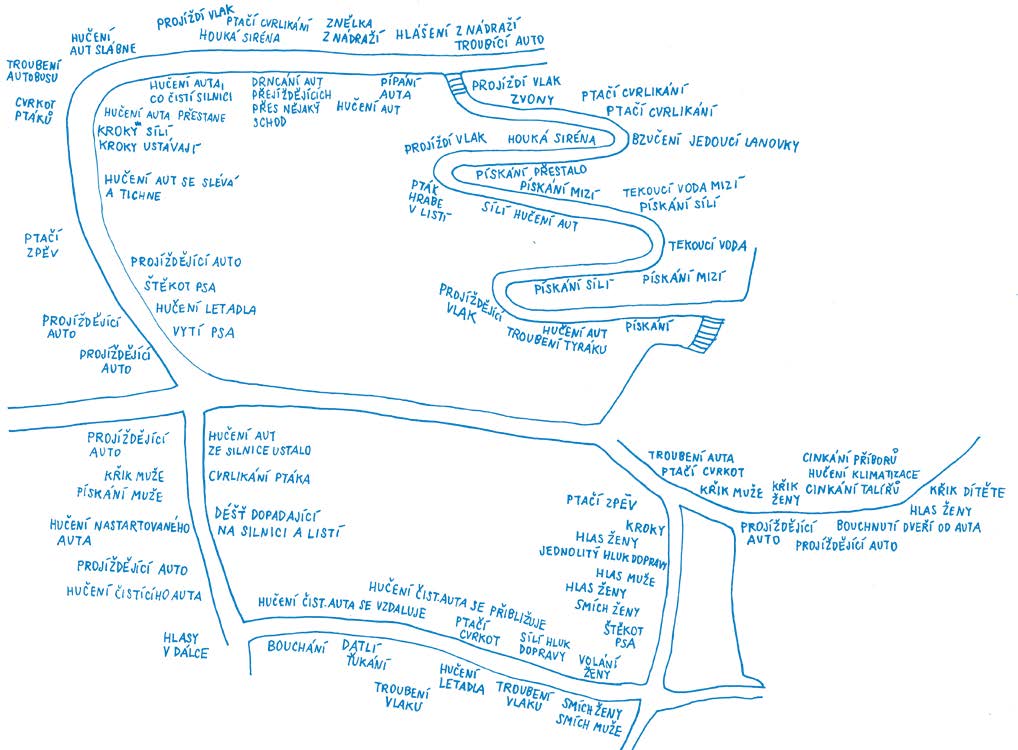 PROJÍŽDÍ VLAK
PTAČÍ CVRLIKÁNÍ
HOUKÁ SIRÉNA
ZNĚLKA
Z NÁDRAŽÍ
HLÁŠENÍ Z NÁDRAŽÍ
TROUBÍCÍ AUTO
HUČENÍ
AUT SLÁBNE
TROUBENÍ
AUTOBUSU
CVRKOT
PTÁKŮ
HUČENÍ AUTA,
CO ČISTÍ SILNICI
DRNCÁNÍ AUT
PŘEJÍŽDĚJÍCÍCH
PŘES NĚJAKÝ
SCHOD
PÍPÁNÍ
AUTA
HUČENÍ AUT
HUČENÍ AUTA PŘESTANE
KROKY SÍLÍ
KROKY USTÁVAJÍ
HUČENÍ AUT SE SLÉVÁ
A TICHNE
PROJÍŽDÍ VLAK
ZVONY
PTAČÍ CVRLIKÁNÍ
PTAČÍ CVRLIKÁNÍ
PROJÍŽDÍ VLAK
HOUKÁ SIRÉNA
BZUČENÍ JEDOUCÍ LANOVKY
PÍSKÁNÍ PŘESTALO
PÍSKÁNÍ MIZÍ
PTÁK
HRABE
V LISTÍ
SÍLÍ HUČENÍ AUT
TEKOUCÍ VODA MIZÍ
PÍSKÁNÍ SÍLÍ
TEKOUCÍ VODA
PÍSKÁNÍ SÍLÍ
PÍSKÁNÍ MIZÍ
PROJÍŽDĚJÍCÍ
VLAK
HUČENÍ AUT
TROUBENÍ TYRÁKU
PÍSKÁNÍ
PTAČÍ
ZPĚV
PROJÍŽDĚJÍCÍ AUTO
ŠTĚKOT PSA
HUČENÍ LETADLA
VYTÍ PSA
PROJÍŽDĚJÍCÍ
AUTO
PROJÍŽDĚJÍCÍ
AUTO
PROJÍŽDĚJÍCÍ
AUTO
KŘIK MUŽE
PÍSKÁNÍ MUŽE
HUČENÍ NASTARTOVANÉHO
AUTA
PROJÍŽDĚJÍCÍ AUTO
HUČENÍ ČISTÍCÍHO AUTA
HLASY
V DÁLCE
HUČENÍ AUT
ZE SILNICE USTALO
CVRLIKÁNÍ PTÁKA
DÉŠŤ DOPADAJÍCÍ
NA SILNICI A LISTÍ
HUČENÍ ČIST. AUTA SE VZDALUJE
HUČENÍ ČIST. AUTA SE PŘIBLIŽUJE
PTAČÍ
CVRKOT
SÍLÍ HLUK
DOPRAVY
BOUCHÁNÍ
DATLÍ
ŤUKÁNÍ
HUČENÍ
LETADLA
TROUBENÍ
VLAKU
TROUBENÍ
VLAKU
SMÍCH ŽENY
SMÍCH MUŽE
PTAČÍ ZPĚV
KROKY
HLAS ŽENY
JEDNOLITÝ HLUK DOPRAVY
HLAS MUŽE
HLAS ŽENY
SMÍCH ŽENY
ŠTĚKOT
PSA
VOLÁNÍ
ŽENY
TROUBENÍ AUTA
PTAČÍ CVRKOT
KŘIK MUŽE
KŘIK
ŽENY
CINKÁNÍ PŘÍBORŮ
HUČENÍ KLIMATIZACE
CINKÁNÍ TALÍŘŮ
KŘIK DÍTĚTE
HLAS ŽENY
PROJÍŽDĚJÍCÍ
AUTO
BOUCHNUTÍ DVEŘÍ OD AUTA
PROJÍŽDĚJÍCÍ AUTO